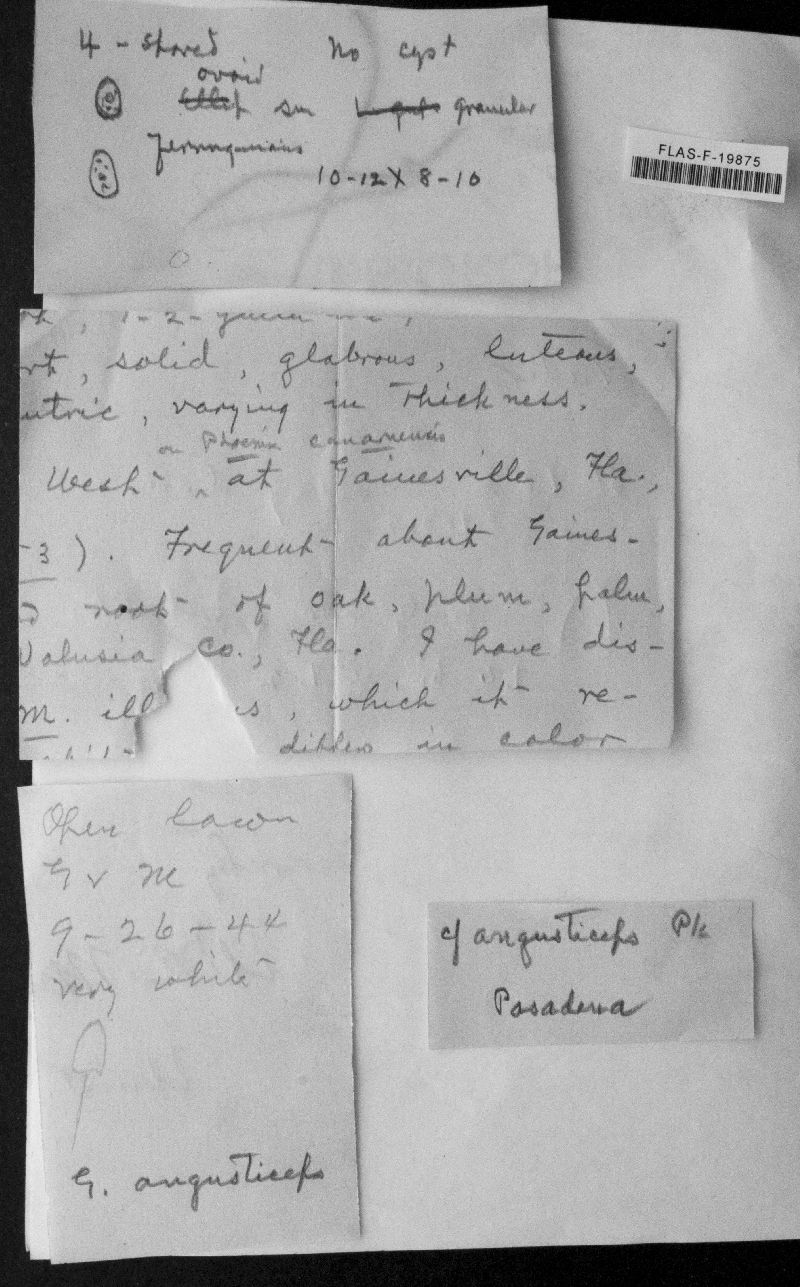 4 - spored No cyst
ovoid
sm granular
ferruginious
10-12 X 8-10
FLAS-F-19875
rt, solid, glabrous, luteous,
ntric, varying in thickness.
on Phoenix canariensis
West at Gainesville, Fla.,
-3). Frequent about Gaines-
root of oak, plum, palm,
Volusia Co., Fla. I have dis-
m. ill s, which it re-
differs in color
Open lawn
G v M
9-26-44
very white
G. angusticeps
cf angusticeps Pk
Pasadena